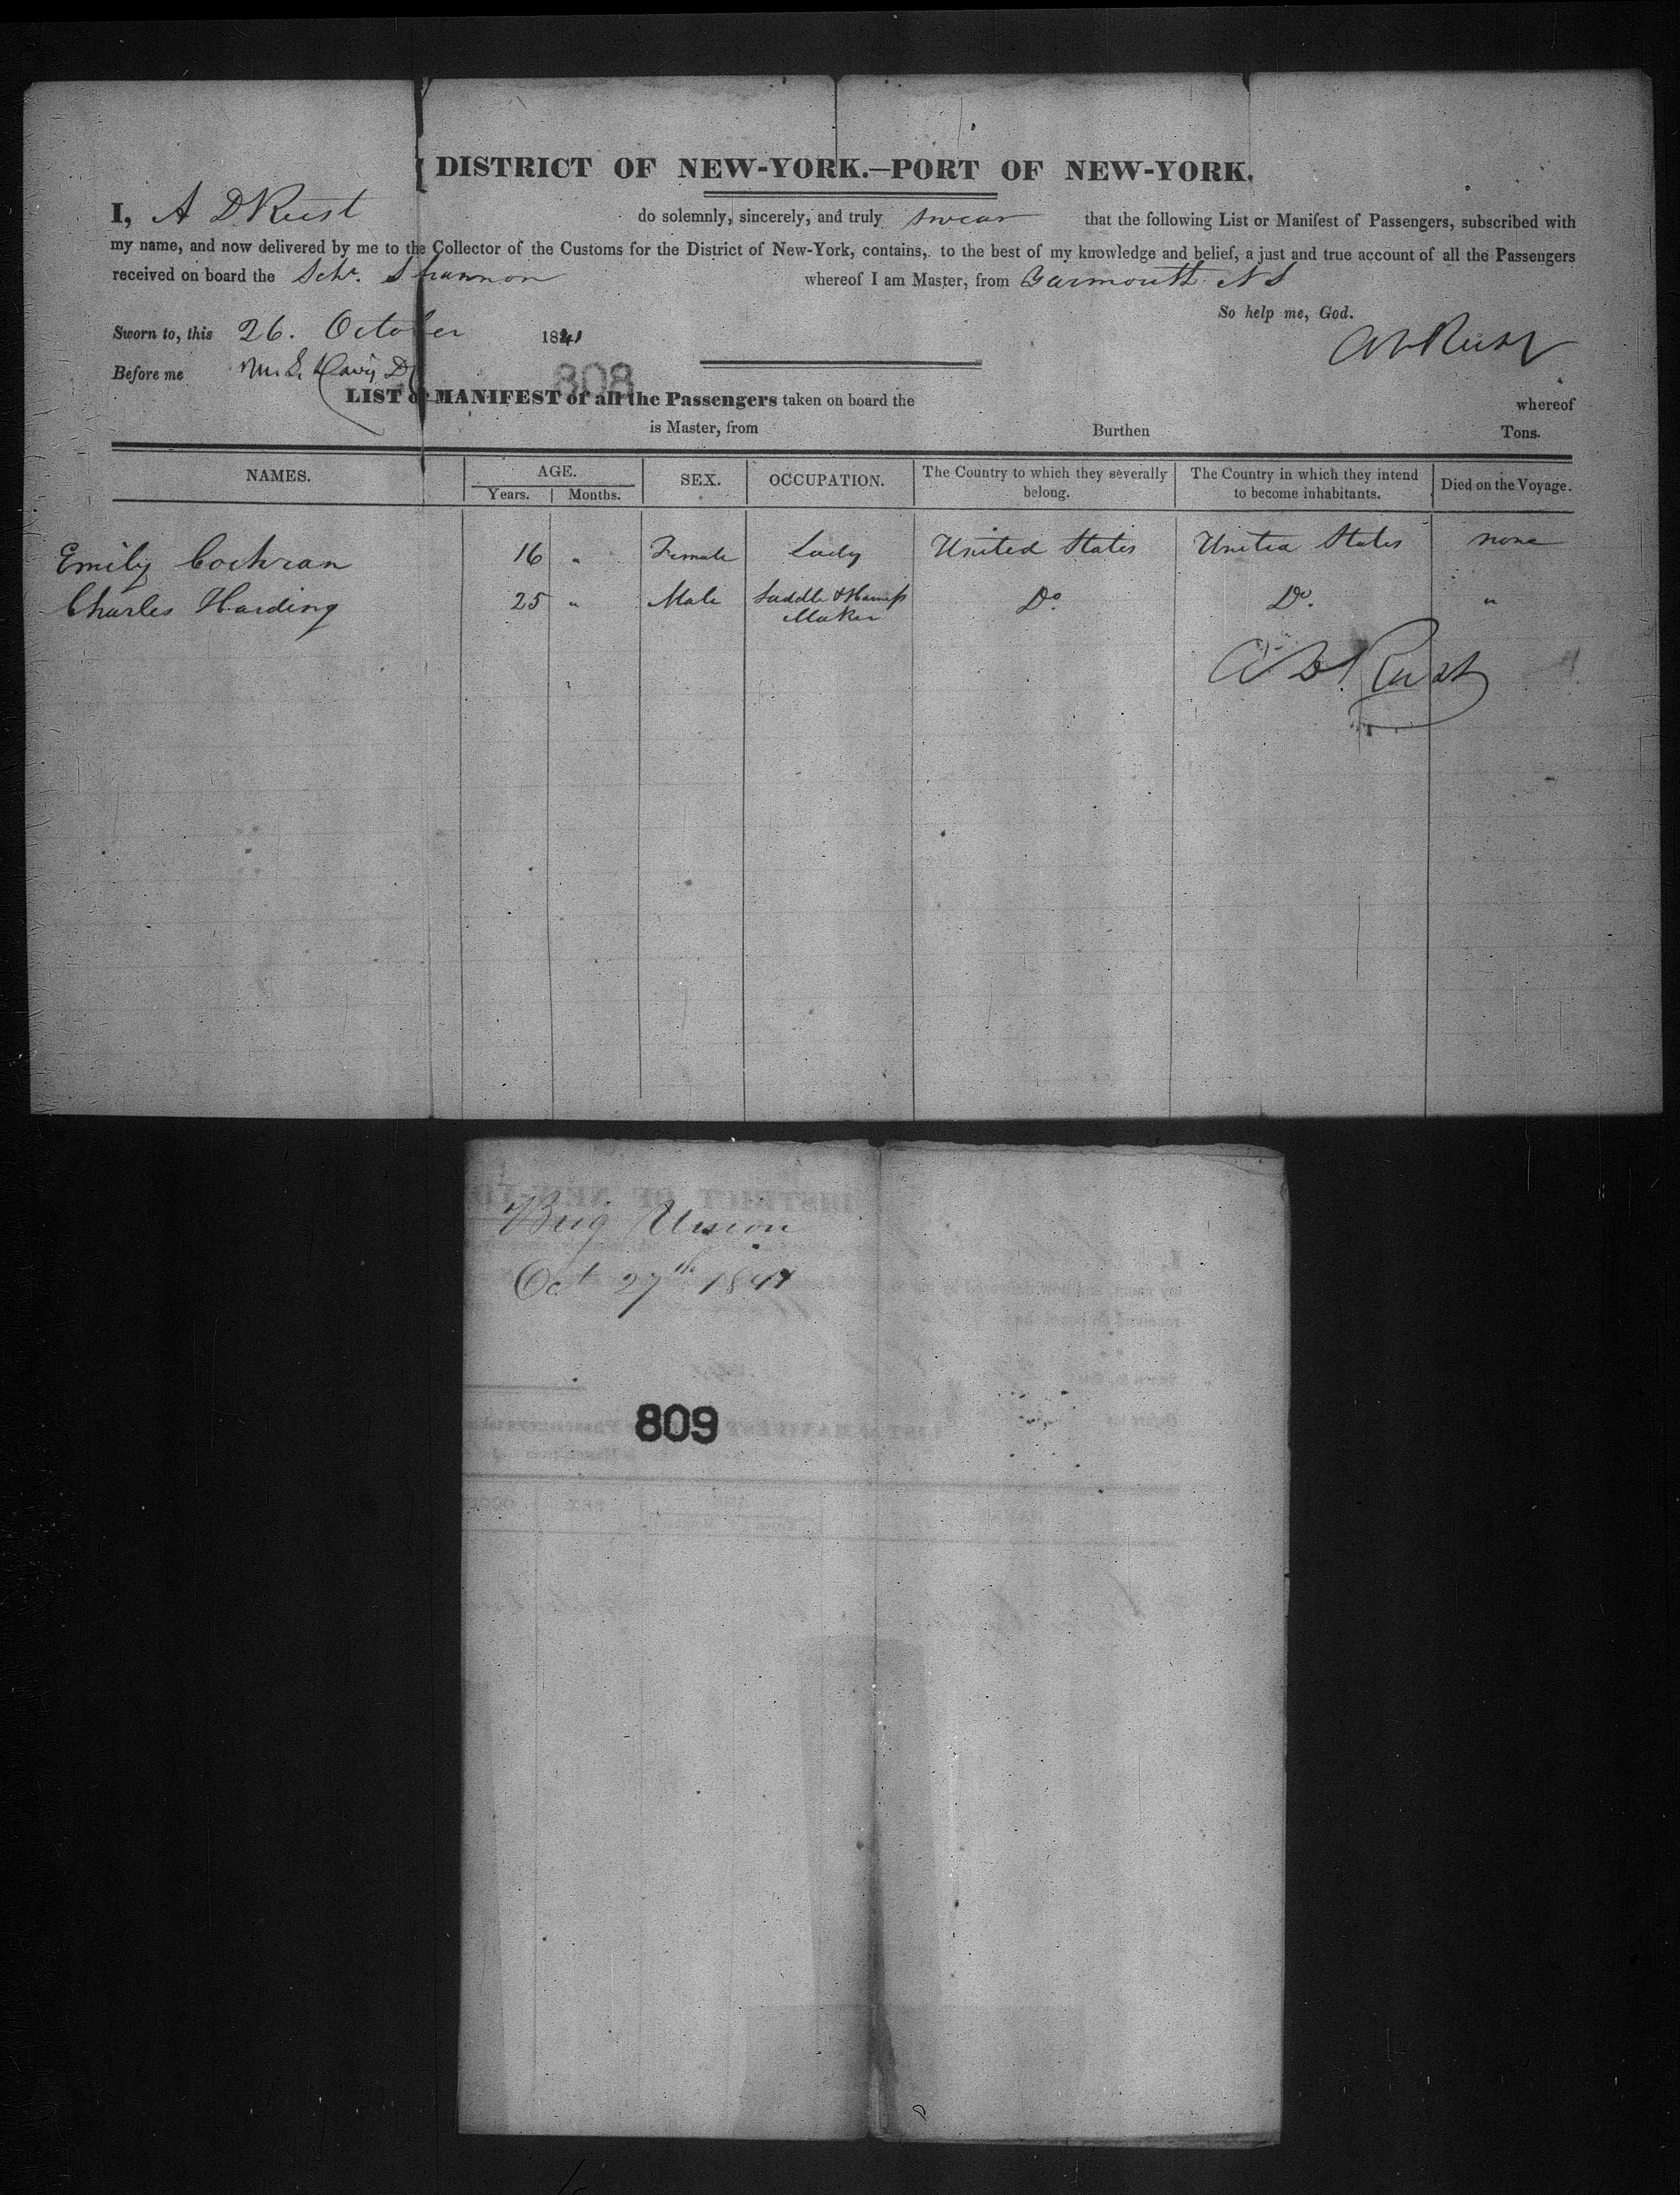 DISTRICT OF NEW-YORK.—PORT OF NEW-YORK.
I, A D Rust do solemnly, sincerely, and truly swear that the following List or Manifest of Passengers, subscribed with
my name, and now delivered by me to the Collector of the Customs for the District of New-York, contains, to the best of my knowledge and belief, a just and true account of all the Passengers
received on board the Schr. Shannon whereof I am Master, from Yarmouth N S
So help me, God.
Sworn to, this 26. October 1841
Before me
808
LIST or MANIFEST of all the Passengers taken on board the whereof
is Master, from Burthen Tons.
NAMES. AGE. SEX. OCCUPATION. The Country to which they severally belong. The Country in which they intend to become inhabitants. Died on the Voyage.
Years. Months.
Emily Cochran 16 " Female Lady United States United States none
Charles Harding 25 " Male Saddle & Harness Maker Do Do. "
A D Rust
Brig Union
Oct 27th 1841
809